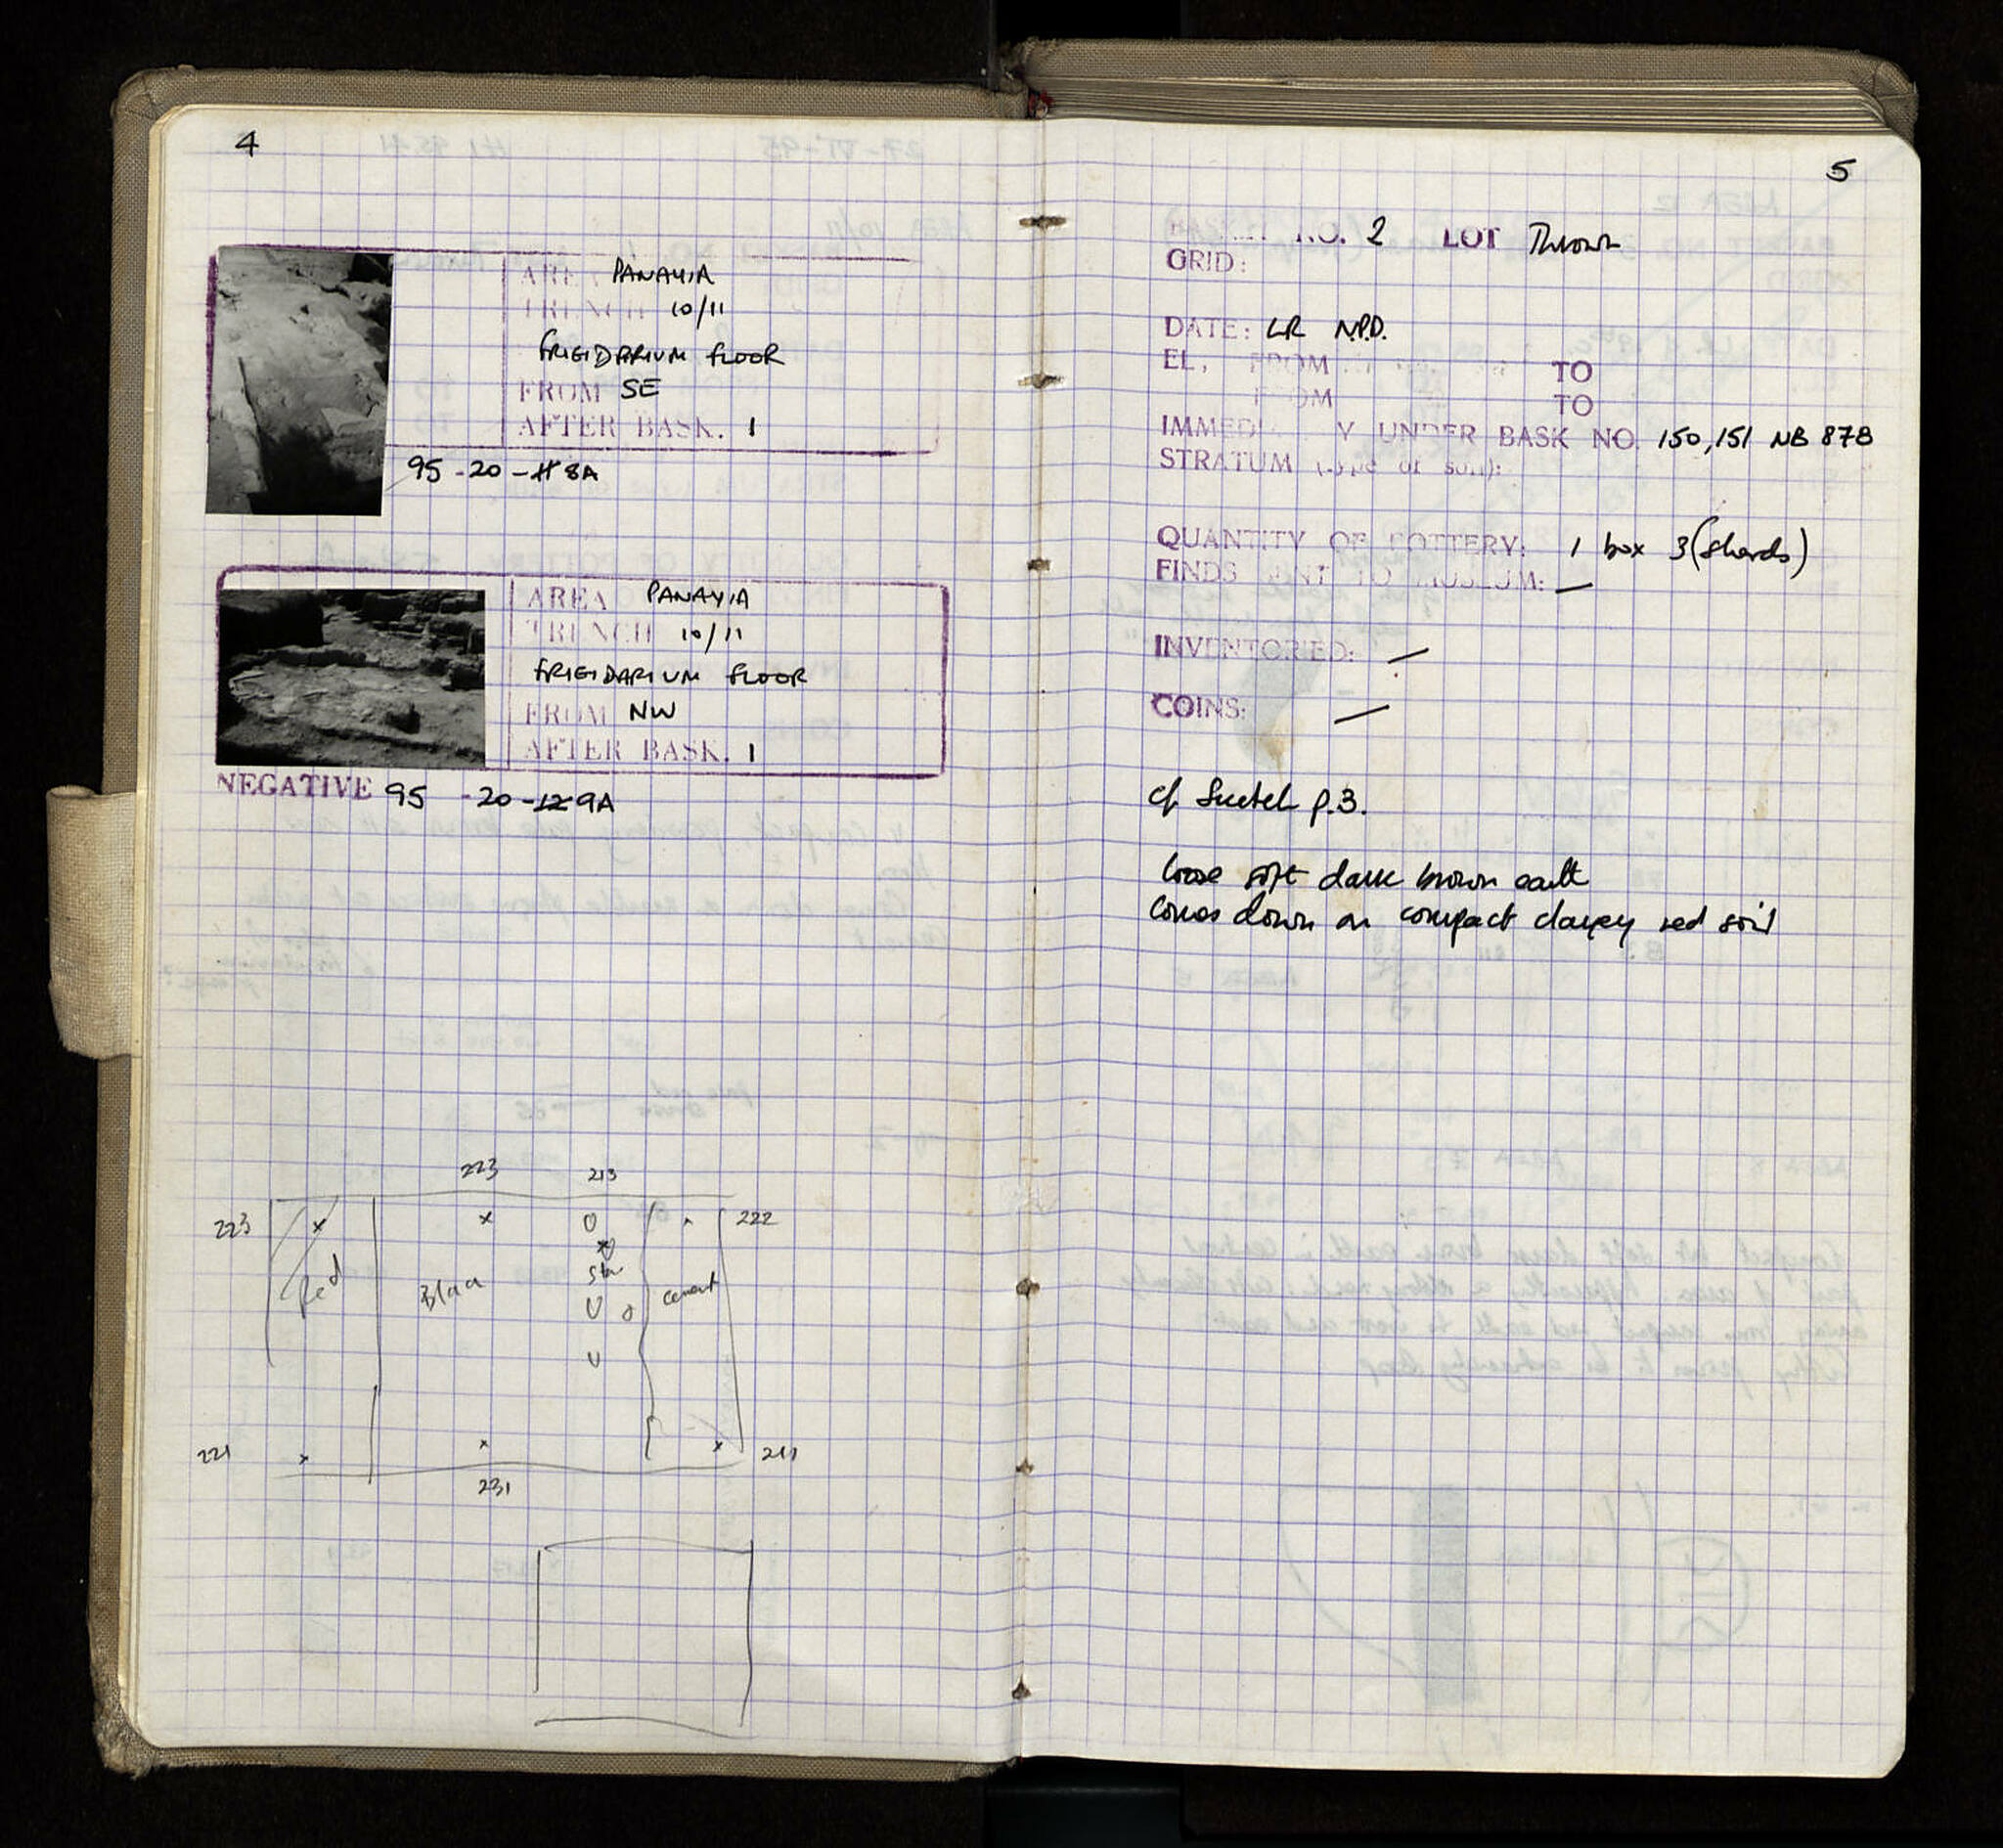 4
AREA PANAYIA
TRENCH 10/11
FRIGIDARIUM FLOOR
FROM SE
AFTER BASK. 1
95-20-8A
AREA PANAYIA
TRENCH 10/11
FRIGIDARIUM FLOOR
FROM NW
AFTER BASK. 1
NEGATIVE 95-20-9A
223 213
223 222
Red
cement
221 211
231
5
BASKET NO. 2 LOT Thrown
GRID:
DATE: LR N.P.D.
EL. FROM TO
FROM TO
IMMED Y UNDER BASK NO. 150,151 NB 878
STRATUM (type of soil):
QUANTITY OF POTTERY: 1 box 3 (sherds)
FINDS SENT TO MUSEUM: —
INVENTORIED: —
COINS: —
cf Sketch p.3.
loose soft dark brown earth
comes down on compact clayey red soil